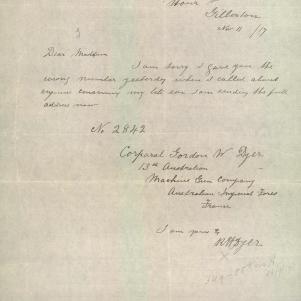 Gilberton
Nov 11 /17
Dear Madam
I am sorry I gave you the
wrong number yesterday when I called about
enquiries concerning my late son I am sending the full
address now
No 2842
Corporal Gordon W Dyer
13th Australian
Machine Gun Company
Australian Imperial Force
France
I am yours &